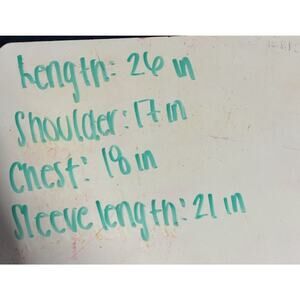 Length: 26 in
Shoulder: 17 in
Chest: 18 in
Sleeve length: 21 in